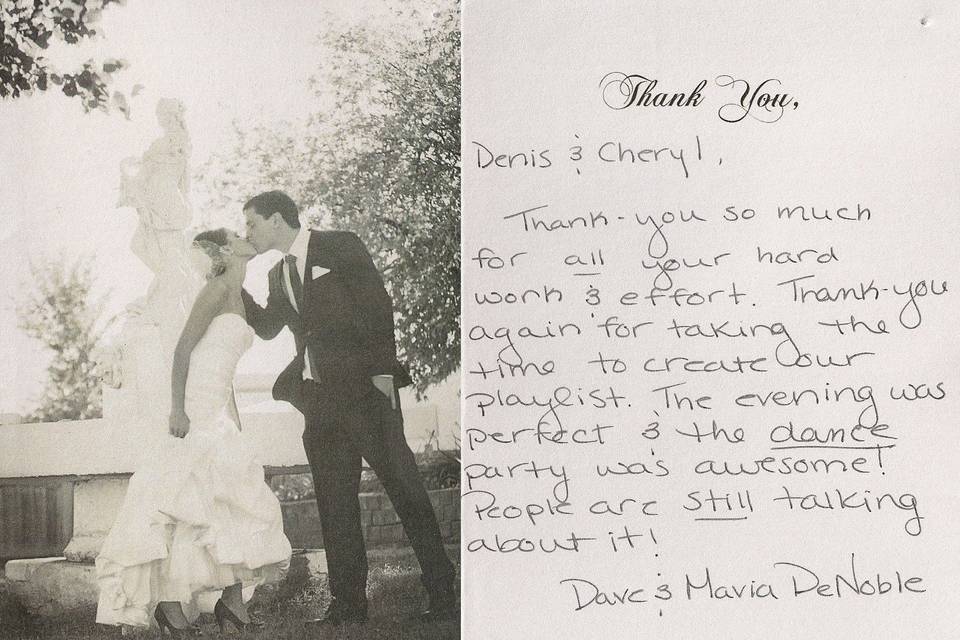 Thank You,
Denis & Cheryl,
Thank-you so much
for all your hard
work & effort. Thank-you
again for taking the
time to create our
playlist. The evening was
perfect & the dance
party was awesome!
People are still talking
about it!
Dave & Maria DeNoble